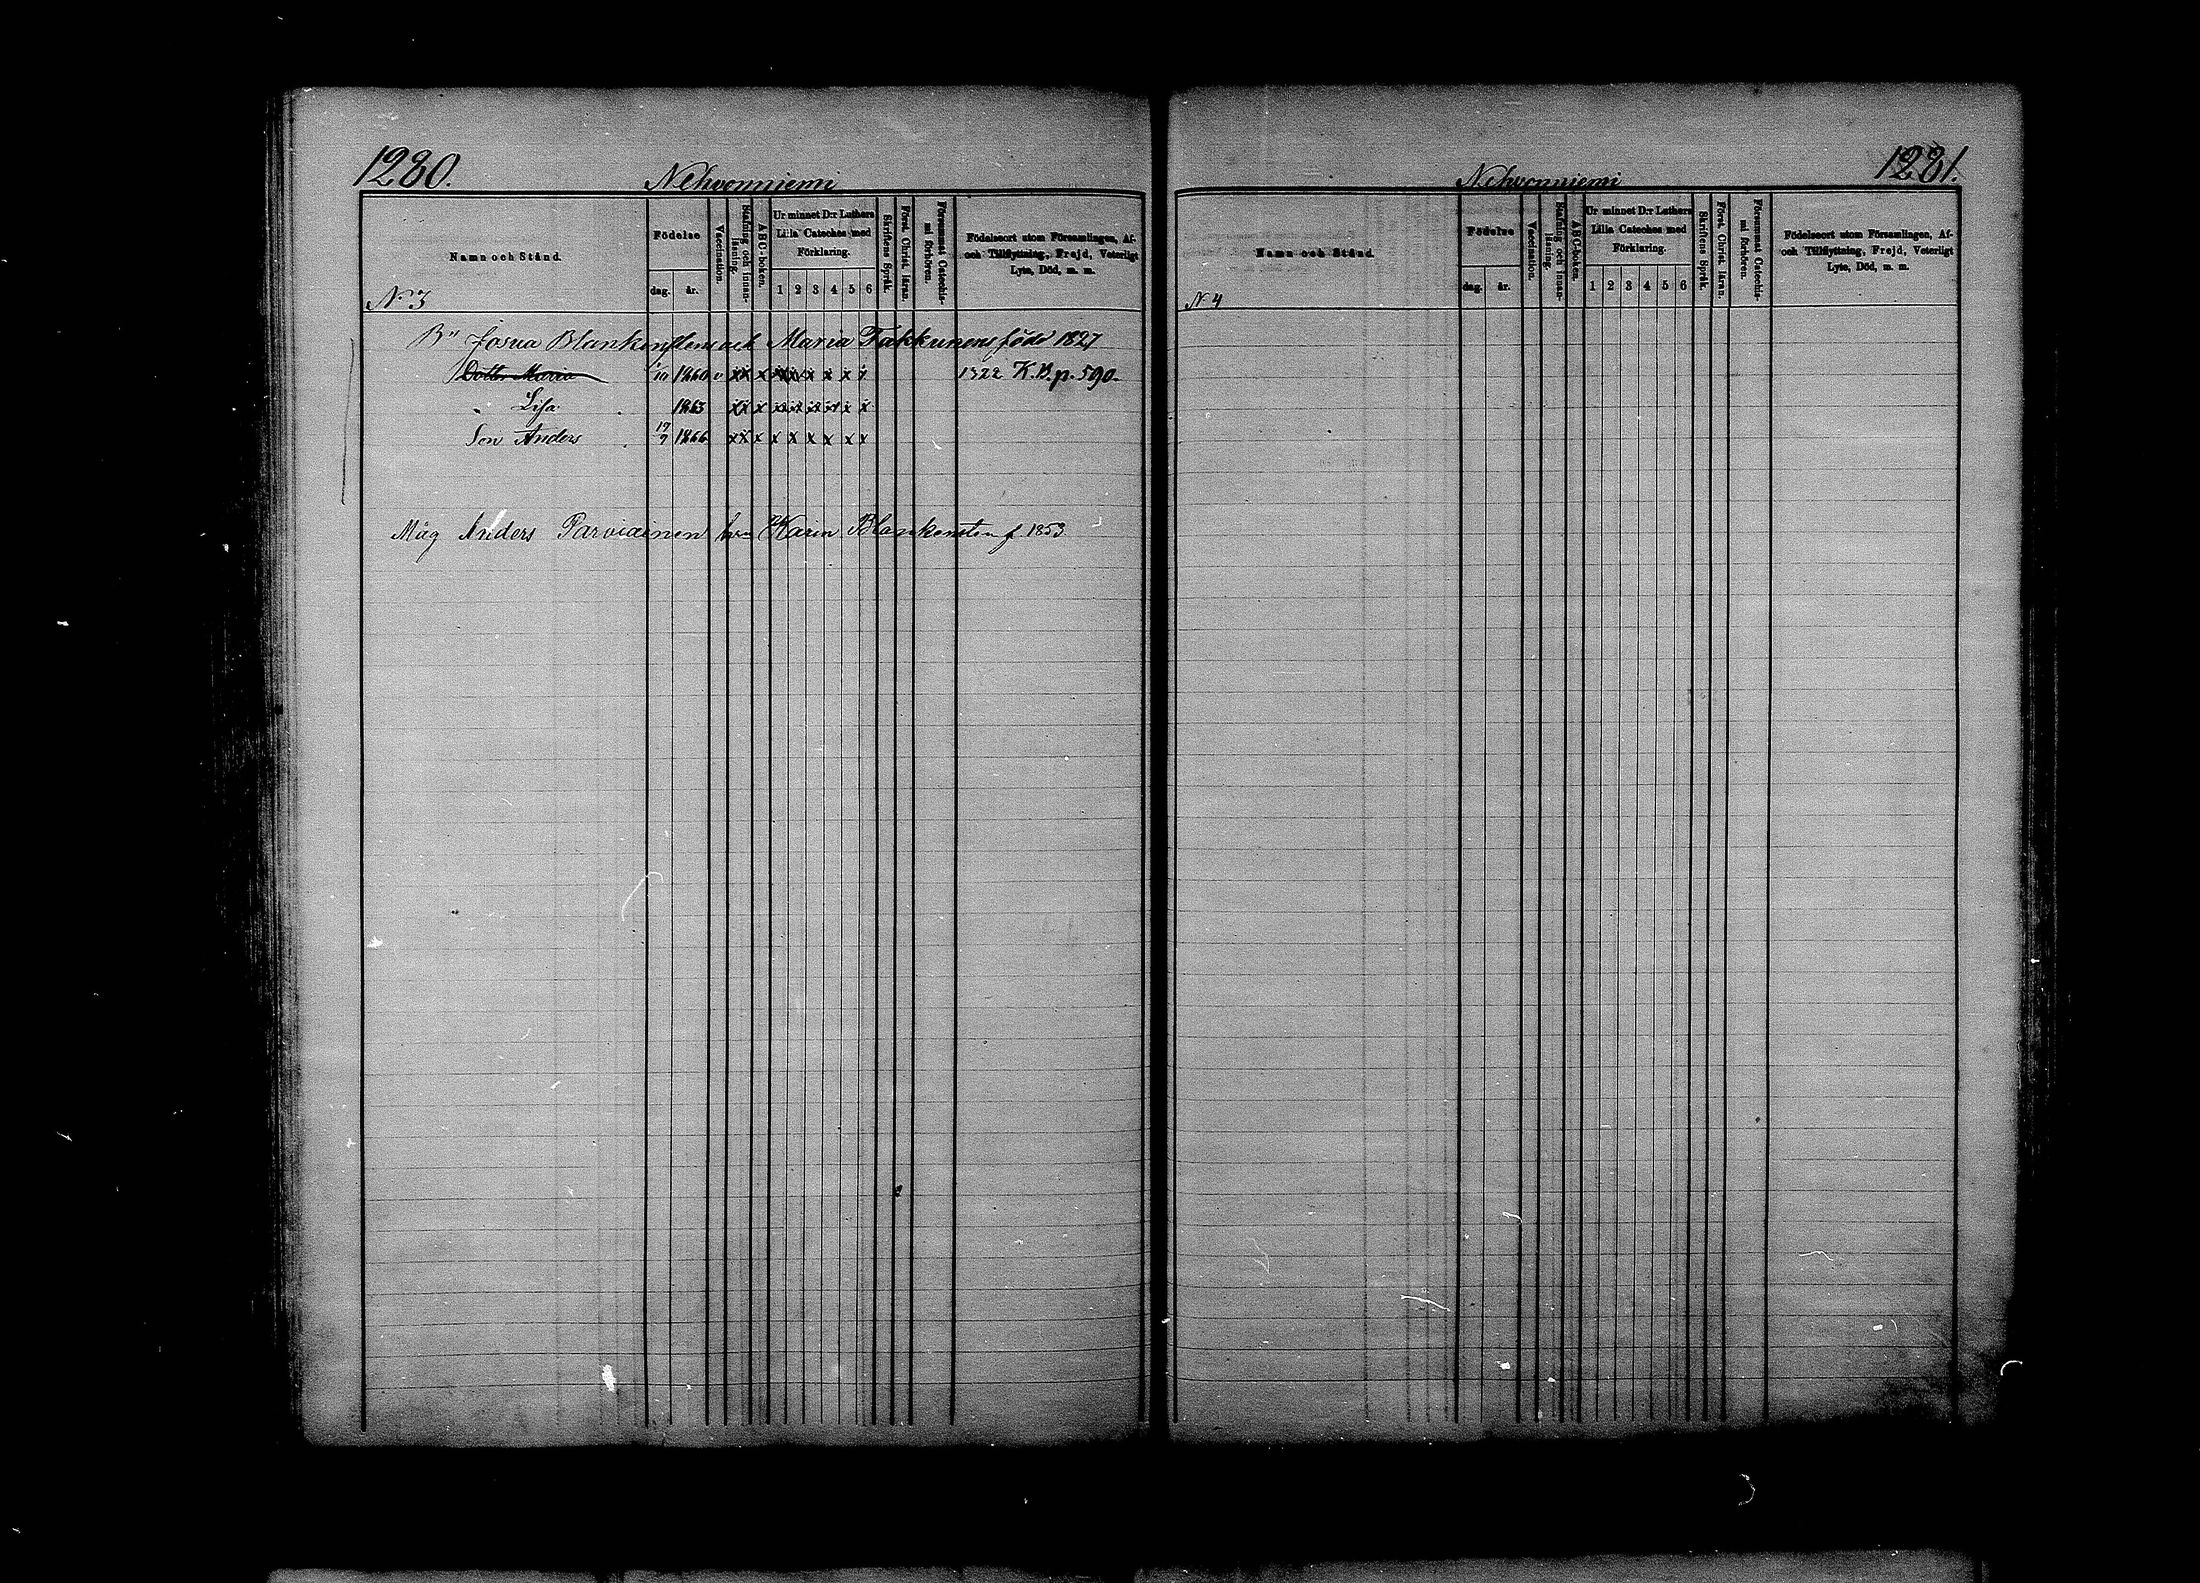 1280.
Nehvonniemi
Namn och Stånd.
Födelse
dag.
år.
Vaccination.
Stafning och innan-
läsning.
ABC-boken.
Ur minnet D:r Luthers
Lilla Cateches med
Förklaring.
1 2 3 4 5 6
Skriftens Språk.
Först. Christ. läran.
Försummat Catechis-
mi förhören.
Födelseort utom Församlingen, Af-
och Tillflyttning, Frejd, Veterligt
Lyte, Död, m. m.
N:o 3
Josua Blankensten och Maria Takkunens född 1827
Dotter Maria 10 1860 v x x x x x x x x x 1322 K.B. p. 590.
Lisa 1863 x x x x x x x x x
Son Anders 17/7 1866 x x x x x x x x x
Måg Anders Parviainen hu Karin Blankensten f. 1853
1281.
Nehvonniemi
Namn och Stånd.
Födelse
dag.
år.
Vaccination.
Stafning och innan-
läsning.
ABC-boken.
Ur minnet D:r Luthers
Lilla Cateches med
Förklaring.
1 2 3 4 5 6
Skriftens Språk.
Först. Christ. läran.
Försummat Catechis-
mi förhören.
Födelseort utom Församlingen, Af-
och Tillflyttning, Frejd, Veterligt
Lyte, Död, m. m.
N 4